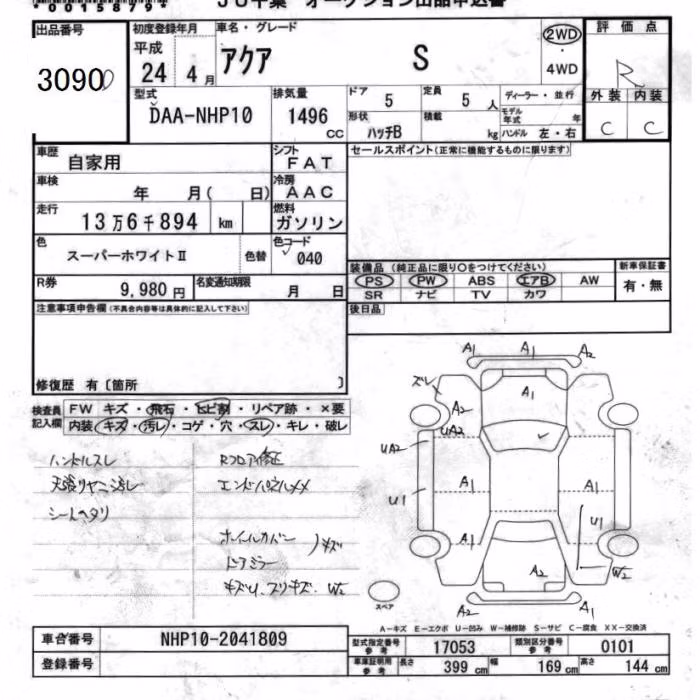 *00015879*
JU千葉 オークション出品申込書
出品番号
30900
初度登録年月
平成
24年 4月
車名・グレード
アクア S
2WD
・
4WD
評価点
R
外装 内装
C C
型式
DAA-NHP10
排気量
1496
CC
ドア 5
定員 5人
ディーラー・並行
モデル年式 年
形状 ハッチB
積載 kg
ハンドル 左・右
車歴 自家用
シフト FAT
セールスポイント(正常に機能するものに限ります)
車検 年 月( 日)
冷房 AAC
走行 13万6千894 km
燃料 ガソリン
色 スーパーホワイトⅡ
色替
色コード 040
装備品(純正品に限り○をつけてください)
新車保証書
PS PW ABS エアB AW
有・無
SR ナビ TV カワ
R券 9,980円
名変通知期限 月 日
後日品
注意事項申告欄(不具合内容等は具体的に記入して下さい)
修復歴 有〔箇所 〕
検査員
記入欄
FW キズ・飛石・ヒビ割・リペア跡・×要
内装 キズ・汚レ・コゲ・穴・スレ・キレ・破レ
ハンドルスレ
天張りヤニ汚レ
シートヘタリ
Rフロア修正
エンドパネルメメ
ホイールカバー
ドアミラー
)キズ
キズU、スリキズ、W2
A1 A1 A2
ズレ
A2
A1
UA2
UA2
A1 A1
U1
U1
A1 A1
A2
W2
A2 A1
スペア
A-キズ E-エクボ U-凹み W-補修跡 S-サビ C-腐食 XX-交換済
車台番号 NHP10-2041809
登録番号
型式指定番号
参考
17053
類別区分番号
参考
0101
車庫証明用
参考
長さ 399cm
幅 169cm
高さ 144cm